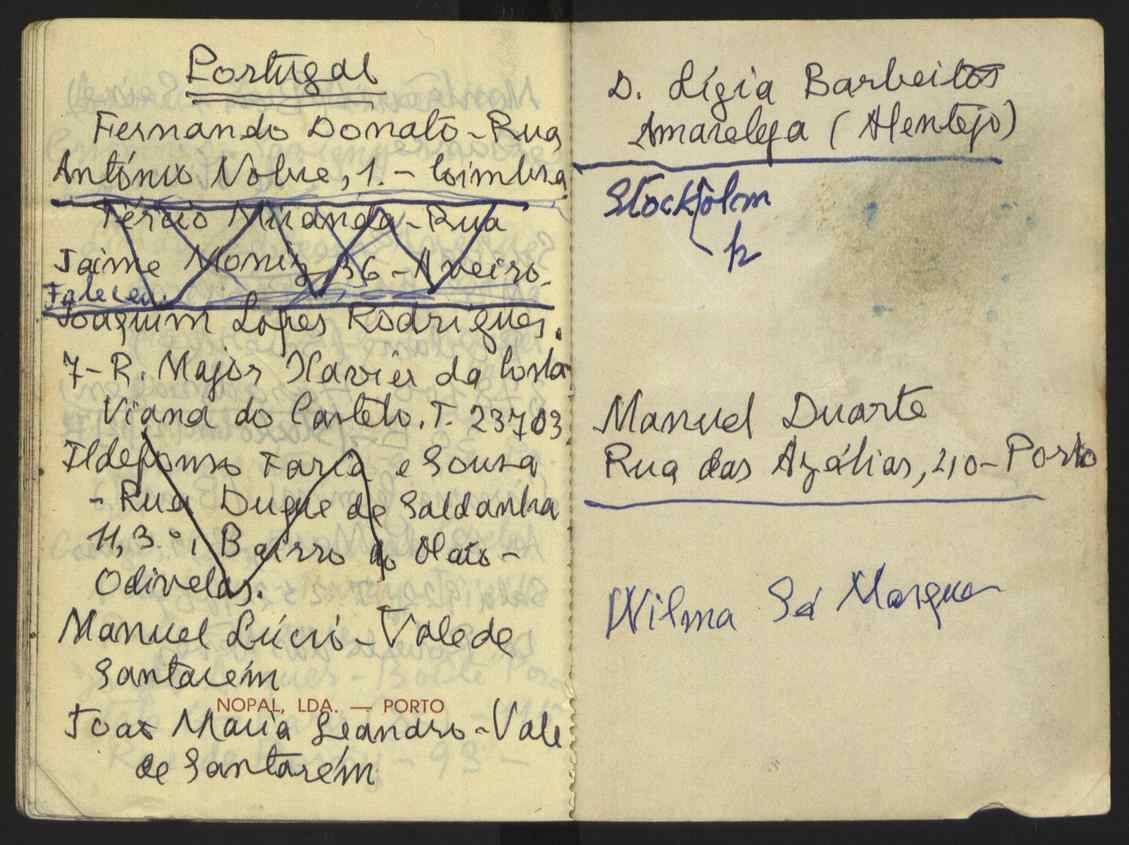 Portugal
Fernando Donato - Rua
António Nobre, 1. - Coimbra
Tércio Miranda - Rua
Jaime Moniz, 36 - Aveiro.
Faleceu.
Joaquim Lopes Rodrigues.
7 - R. Major Xavier da Costa
Viana do Castelo. T. 23703
Ildefonso Faria e Sousa
- Rua Duque de Saldanha
11, 3º, Bairro do Olaio -
Odivelas.
Manuel Lúcio - Vale de
Santarém
NOPAL, LDA. — PORTO
Joao Maria Leandro - Vale
de Santarém
D. Lígia Barbeitos
Amareleja (Alentejo)
Stockolm
h
Manuel Duarte
Rua das Azálias, 210 - Porto
Wilma Sá Marques